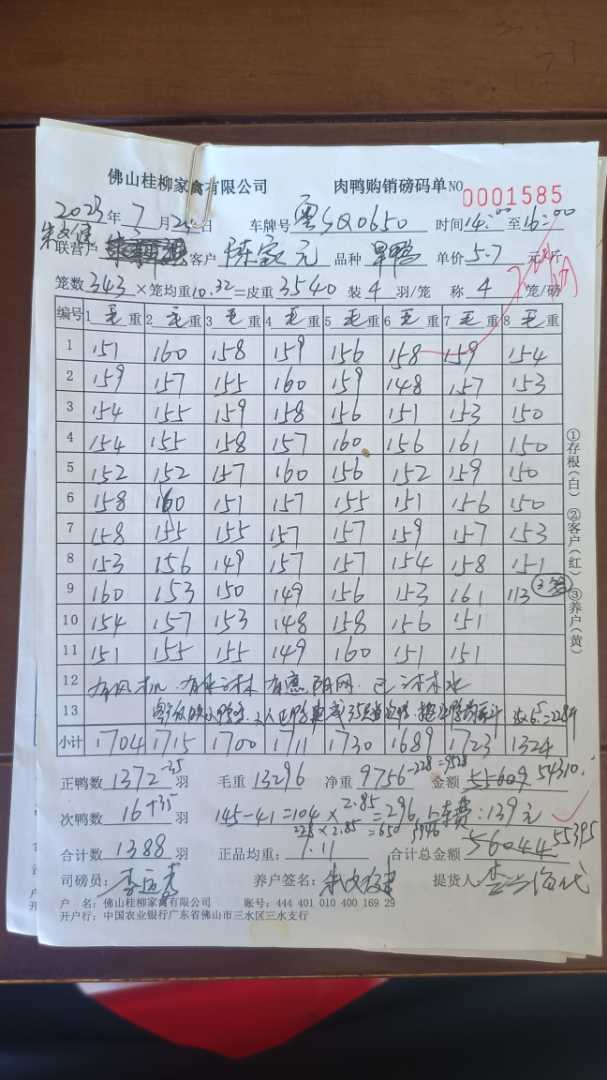 佛山桂柳家禽有限公司 肉鸭购销磅码单 NO 0001585
2023年7月25日 车牌号 粤SQ0650 时间14:00至16:00
联营户 客户 陈家元 品种 旱鸭 单价5.7元/斤
笼数343×笼均重10.32=皮重3540 装4羽/笼 称4笼/磅
编号 1毛重 2毛重 3毛重 4毛重 5毛重 6毛重 7毛重 8毛重
1 151 160 158 159 156 158 159 154
2 159 157 155 160 159 148 157 153
3 154 155 159 158 156 151 153 150
4 154 155 158 157 160 156 161 150
5 152 152 157 160 156 152 159 150
6 158 160 151 157 155 151 156 150
7 158 155 155 157 157 159 157 153
8 153 156 149 157 157 154 158 151
9 160 153 150 149 156 153 161 113
10 154 157 153 148 158 156 151
11 151 155 155 149 160 151 151
12 有风机
13
小计 1704 1715 1700 1711 1730 1689 1723 1324
正鸭数1372-35羽 毛重13296 净重9756-228=9528 金额55609 54310
次鸭数16+35羽 145-41=104×2.85=296 车费:139元
228×2.85=650
合计数1388羽 正品均重:7.11 合计总金额56044 55395
司磅员: 养户签名: 提货人:
户 名:佛山桂柳家禽有限公司 账号:444 401 010 400 169 29
开户行:中国农业银行广东省佛山市三水区三水支行
①存根(白) ②客户(红) ③养户(黄)